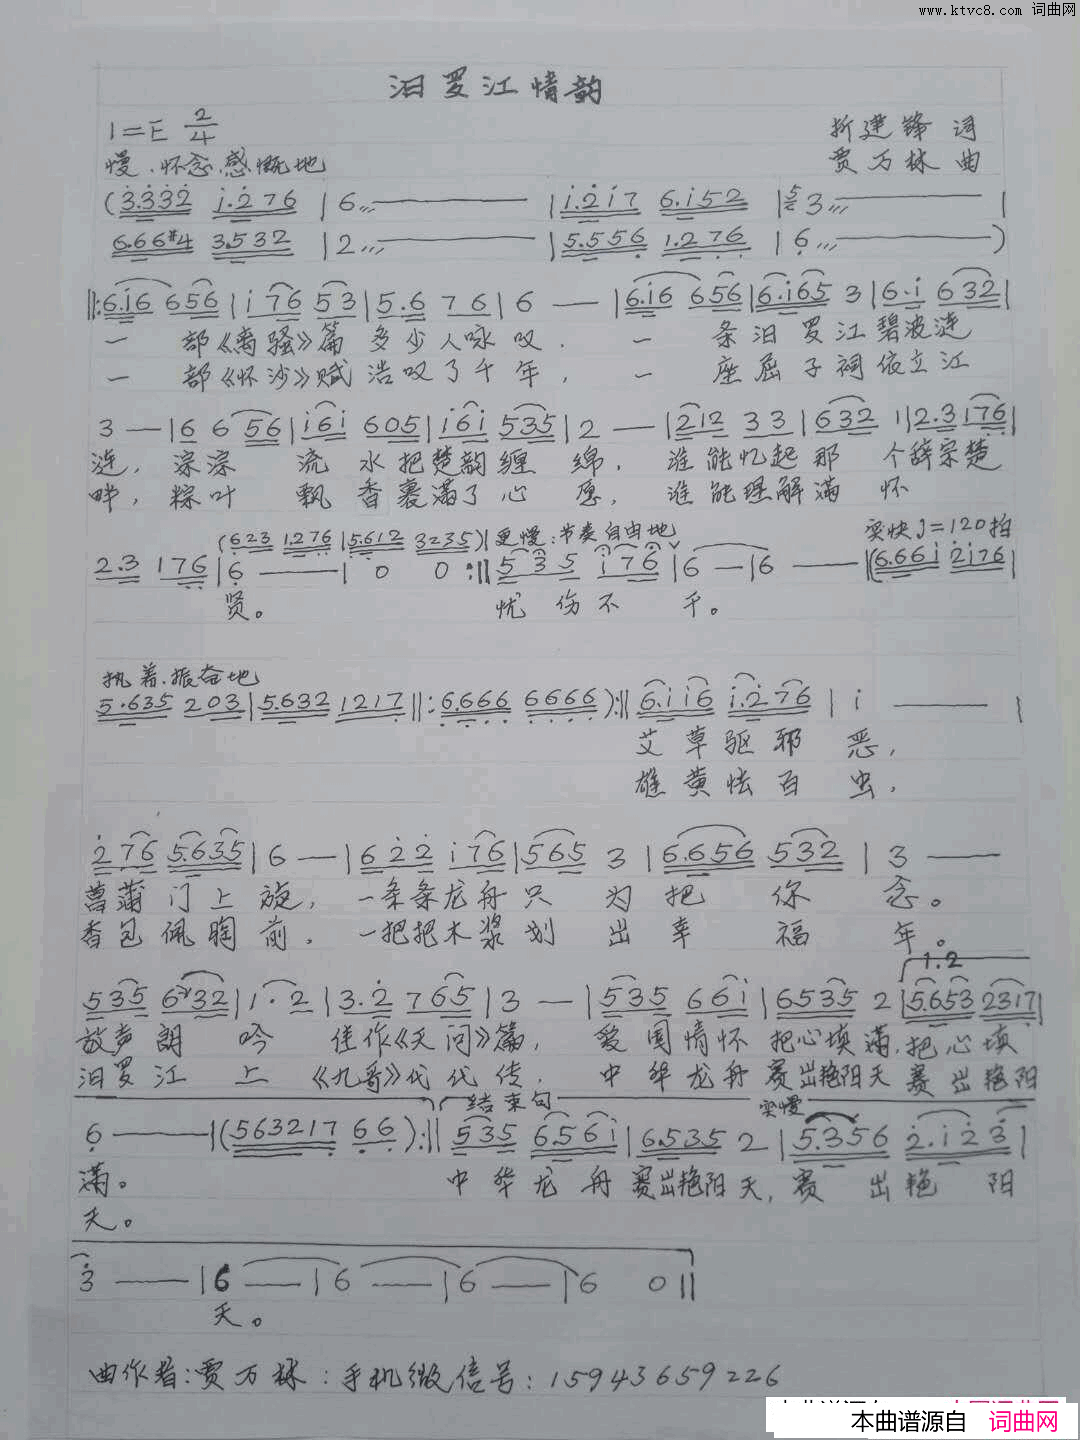 www.ktvc8.com 词曲网
汨罗江情韵
1=E 2/4
折建锋 词
慢.怀念.感慨地
贾万林 曲
(3.332 i.276 | 6,,, —— | i.2i7 6.i52 | 3,,, —— |
6.66#4 3.532 | 2,,, —— | 5.556 1.276 | 6,,, —— )
‖: 6.i6 656 | i 76 53 | 5.6 76 | 6 — | 6.i6 656 | 6.i65 3 | 6.i 632 |
一 部《离骚》篇 多少人咏叹. 一 条汨罗江碧波涟
一 部《怀沙》赋 浩叹了千年, 一 座屈子祠依立江
3 — | 6 6 56 | i6i 605 | i6i 535 | 2 — | 212 33 | 632 1 | 2.3 176 |
涟, 淙淙 流水把楚韵缠绵, 谁能忆起那个辞宗楚
畔, 粽叶 飘香裹满了心愿, 谁能理解满怀
(623 1.276 | 5.612 3235) | 更慢:节奏自由地 突快♩=120拍
2.3 176 | 6 — | 0 0 :‖ 5 3 5 i76 | 6 — | 6 — | (6.66i 2i76 |
贤。 忧伤不干。
执着.振奋地
5.635 203 | 5.632 1217 ‖: 6.666 6666 ) :‖ 6.ii6 i.276 | i — |
艾草驱邪恶,
雄黄怯百虫,
2 76 5.635 | 6 — | 622 i76 | 565 3 | 6.656 532 | 3 —
菖蒲门上旋, 一条条龙舟只为把你念。
香包佩胸前. 一把把木浆划出幸福年。
1.2
535 632 | 1.2 | 3.2 765 | 3 — | 535 66i | 6535 2 | 5.653 2317 |
放声朗吟 佳作《天问》篇, 爱国情怀把心填满,把心填
汨罗江上 《九哥》代代传, 中华龙舟赛出艳阳天赛出艳阳
结束句 突慢
6 — | (563217 66 ) :‖ 535 6.56i | 6.535 2 | 5.356 2.i23 |
满。 中华龙舟赛出艳阳天,赛出艳阳
天。
3 — | 6 — | 6 — | 6 — | 6 0 ‖
天。
曲作者:贾万林:手机微信号:15943659226
本曲谱源自 词曲网